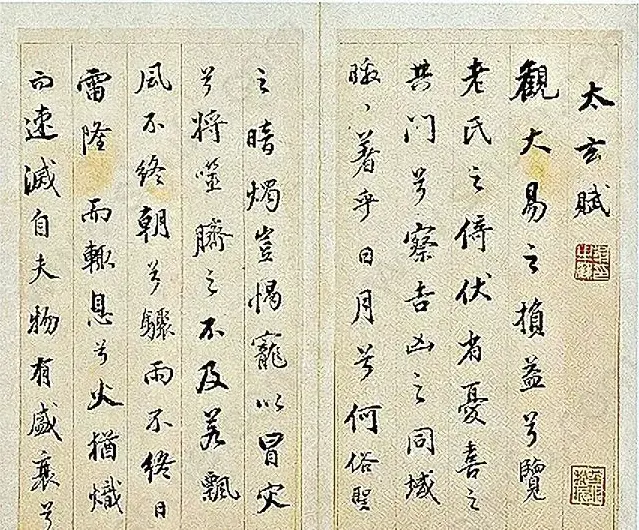 太玄賦
觀大易之損益兮覽
老氏之倚伏省憂喜之
共門兮察吉凶之同域
皦〻著乎日月兮何俗聖
之暗燭豈愒寵以冒灾
兮將噬臍之不及若飄
風不終朝兮驟雨不終日
雷隆而輒息兮火猶熾
而速滅自夫物有盛衰兮